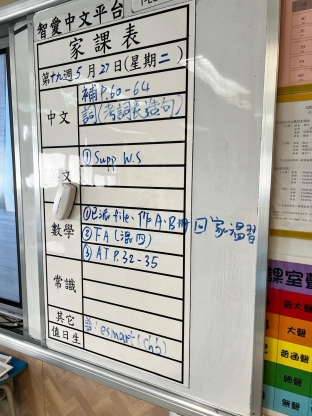 智愛中文平台
家課表
第十九週 5月27日(星期二)
中文
補 P.60-64
詞(考詞長造句)
文
① Supp W.S
數學
①已派 file、作A、B冊回家溫習
② FA (混四)
③ AT P.32-35
常識
其它
值日生
課室聲
大聲
普通聲
細聲
無聲